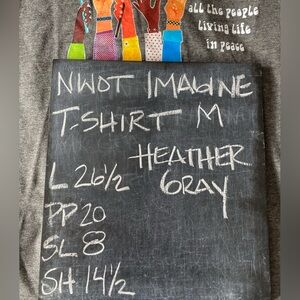 all the people
living life
in peace
NWOT IMAGINE
T-SHIRT M
HEATHER
GRAY
L 26½
PP 20
SL 8
SH 14½